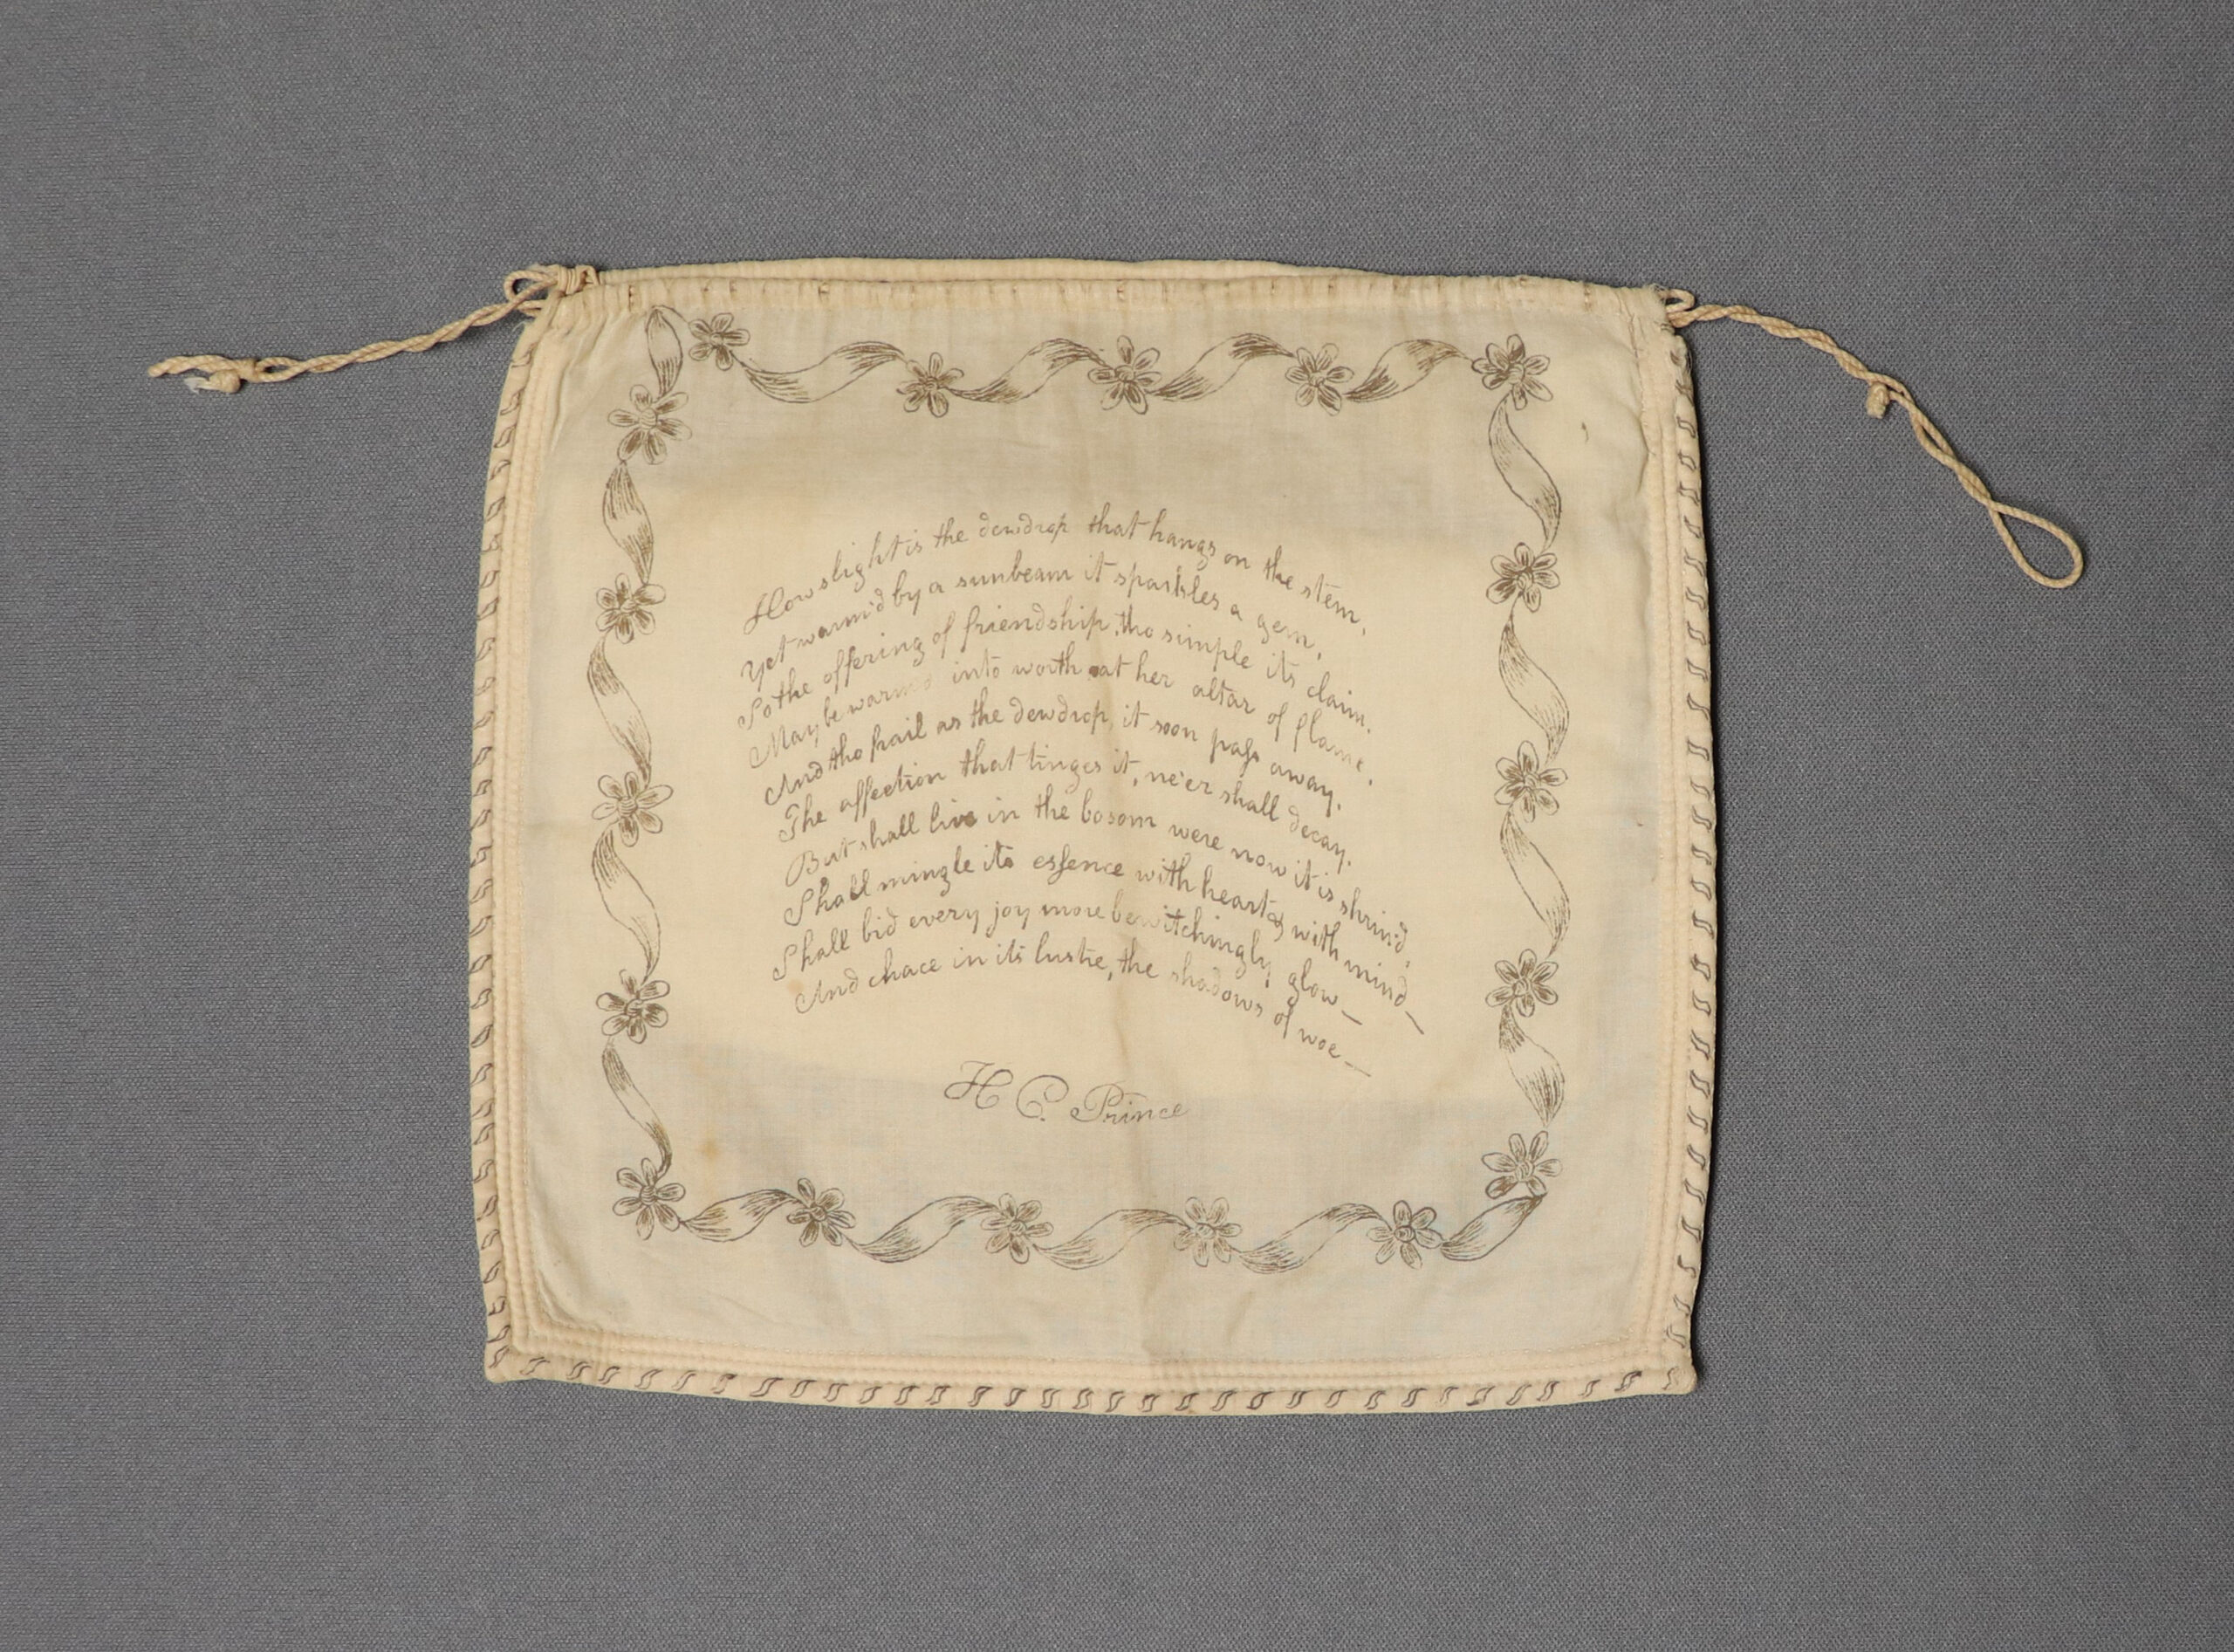 How slight is the dewdrop that hangs on the stem,
Yet warm'd by a sunbeam it sparkles a gem,
So the offering of friendship, tho simple its claim,
May be warm'd into worth at her altar of flame,
And tho frail as the dewdrop, it soon pass away,
The affection that tinges it, ne'er shall decay,
But shall live in the bosom were now it is shrin'd,
Shall mingle its essence with heart & with mind—
Shall bid every joy more bewitchingly glow—
And chace in its lustre, the shadows of woe—
H C. Prince